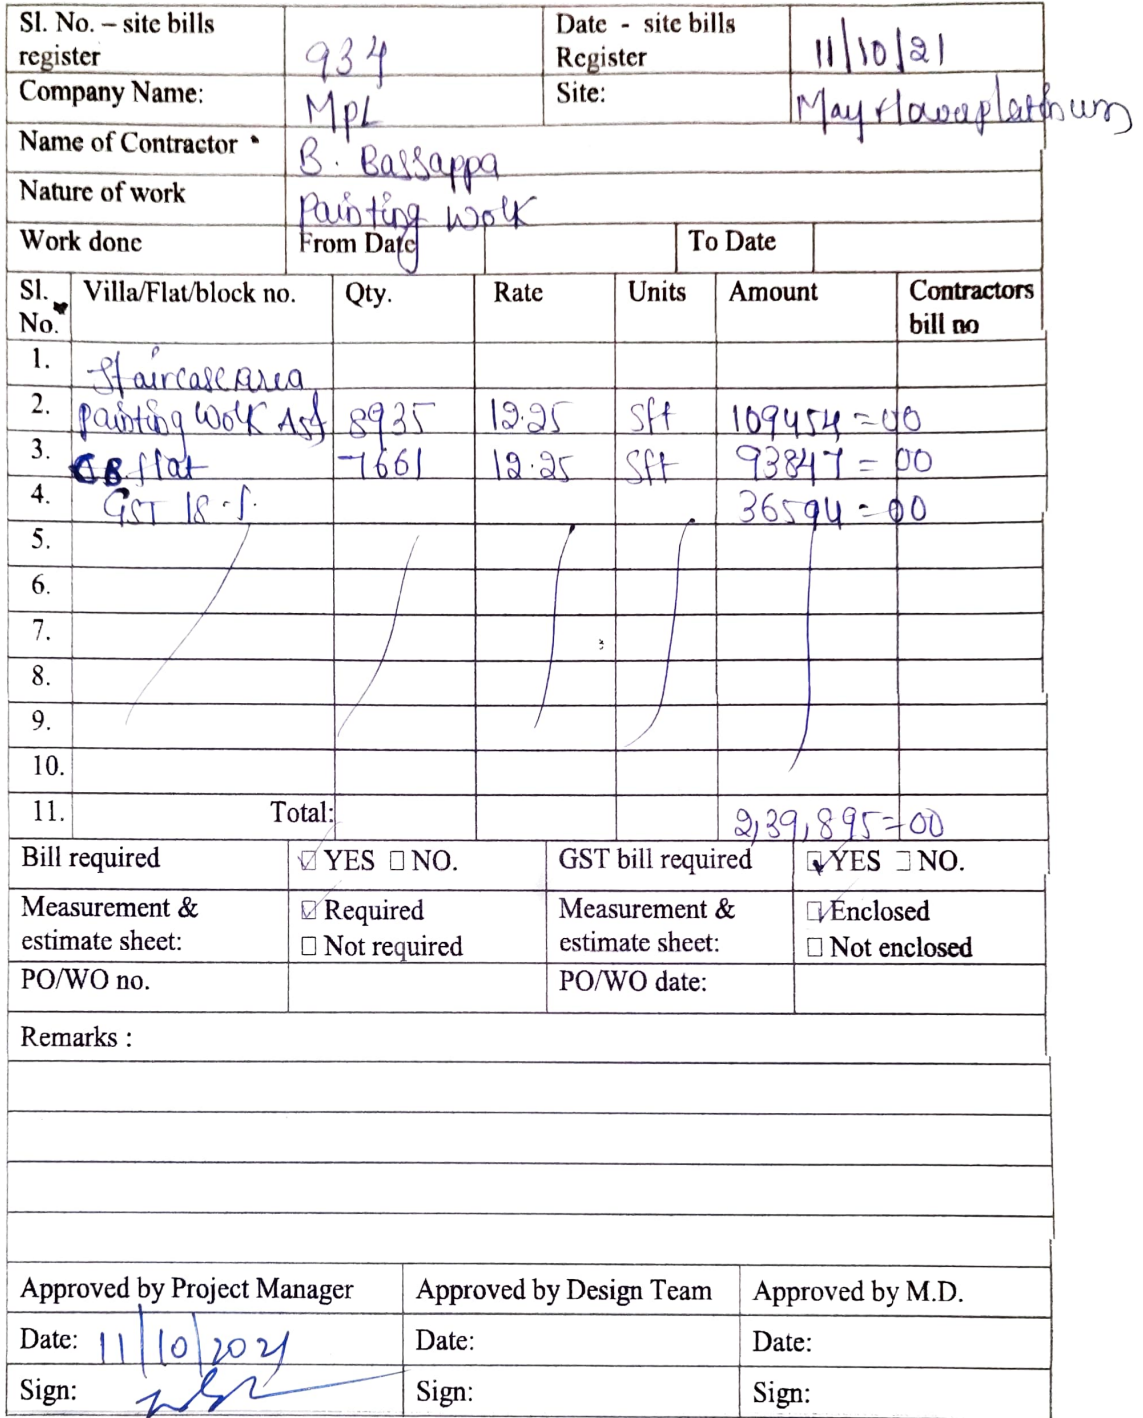 Sl. No. – site bills register 934 Date - site bills Register 11/10/21
Company Name: MPL Site: Mayflower platinum
Name of Contractor B. Bassappa
Nature of work Painting Work
Work done From Date To Date
Sl. No. Villa/Flat/block no. Qty. Rate Units Amount Contractors bill no
1. Staircase area
2. Painting Work 8935 12.25 sft 109454=00
3. B flat 7661 12.25 sft 93847=00
4. GST 18 36594=00
5.
6.
7.
8.
9.
10.
11. Total: 2,39,895=00
Bill required ☑ YES ☐ NO. GST bill required ☑ YES ☐ NO.
Measurement & estimate sheet: ☑ Required ☐ Not required Measurement & estimate sheet: ☑ Enclosed ☐ Not enclosed
PO/WO no. PO/WO date:
Remarks :
Approved by Project Manager Approved by Design Team Approved by M.D.
Date: 11/10/2021 Date: Date:
Sign: Sign: Sign: